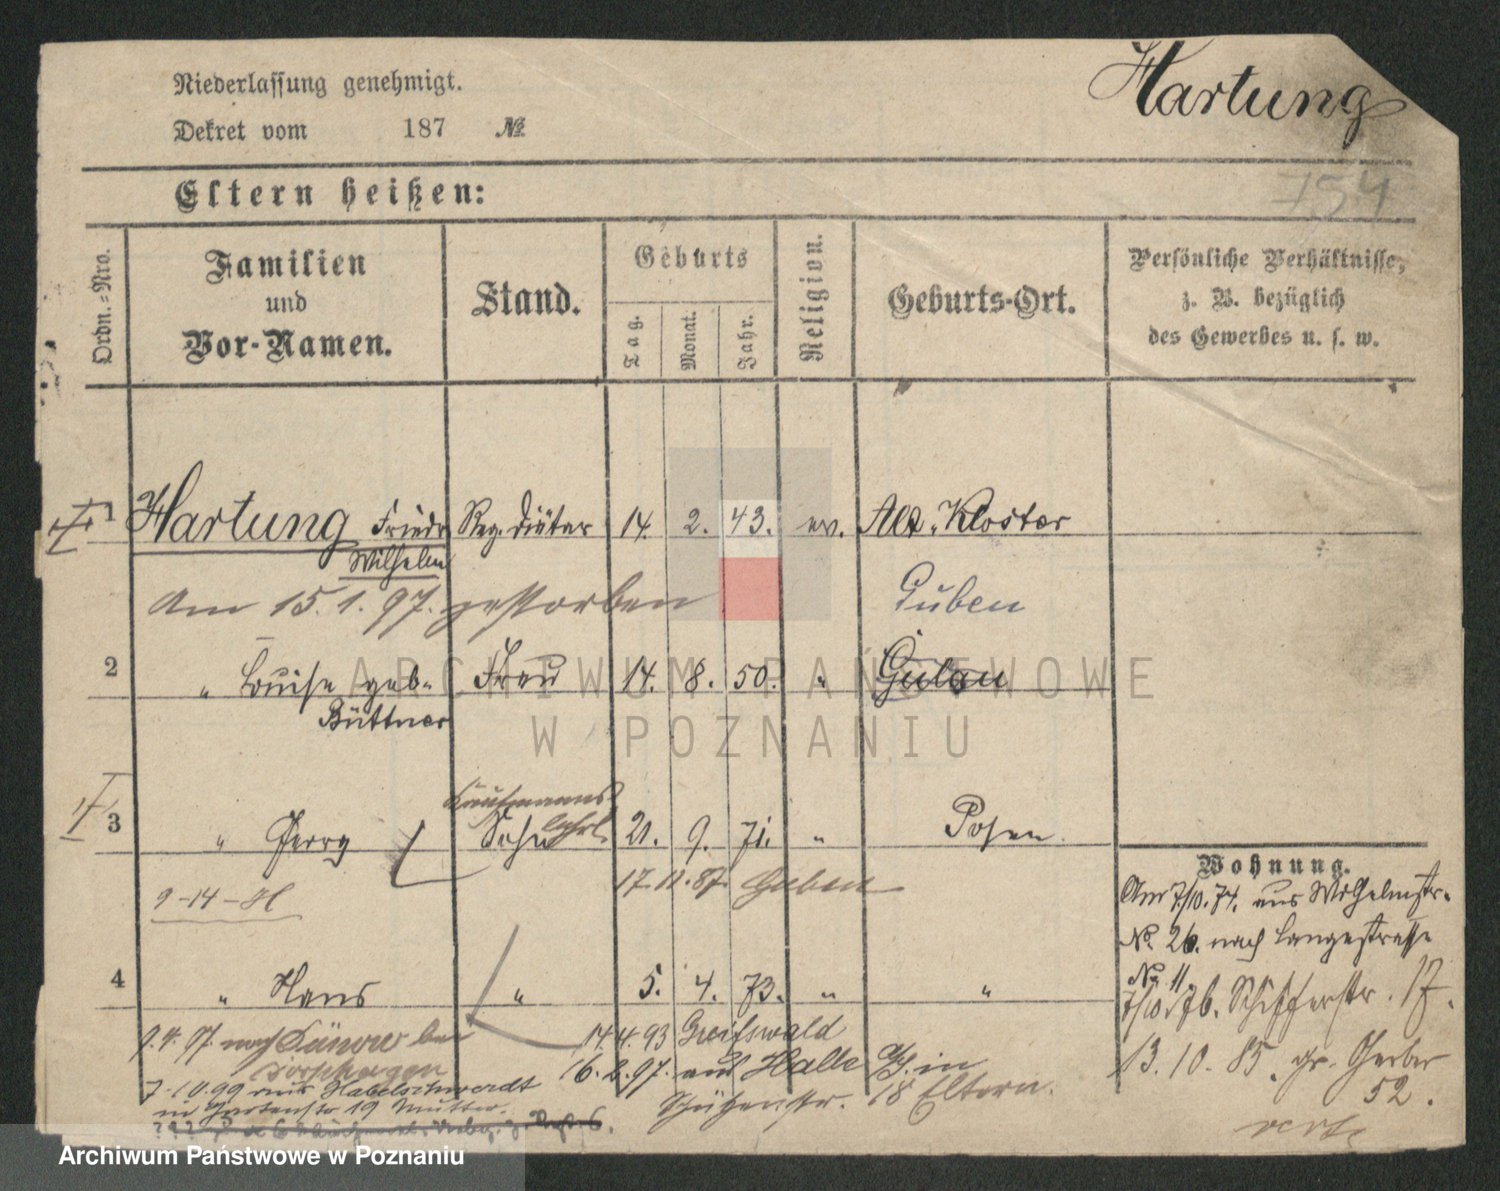 Niederlassung genehmigt.
Hartung
Dekret vom 187 №
754
Eltern heißen:
Ordn.-Nro.
Familien und Vor-Namen.
Stand.
Geburts
Tag.
Monat.
Jahr.
Religion.
Geburts-Ort.
Persönliche Verhältnisse,
z. B. bezüglich
des Gewerbes u. s. w.
1 Hartung Friedr Reg. Diätar 14. 2. 43. ev. Alt-Kloster
Wilhelm
Am 15.1.97. gestorben
Guben
2 " Louise geb. Frau 14. 8. 50. "
Büttner
Kaufmanns
3 " Sohn lehrl. 21. 9. 71. " Posen.
17.11.87. Guben
9-14-H
4 " Hans " 5. 4. 73. " "
Wohnung.
Am 7/10. 74. aus Wilhelmstr.
No. 26. nach Langestrasse
No 11
7/10. 76. Schifferstr. 17.
13.10.85. gr. Gerber
52.
14.4.93 Greifswald
9.4.97. nach
16.2.97. aus Halle in
Schützenstr. 18 Eltern.
7.10.99 aus Habelschwerdt
in Gartenstr 19 Mutter.
ARCHIWUM PAŃSTWOWE
W POZNANIU
Archiwum Państwowe w Poznaniu